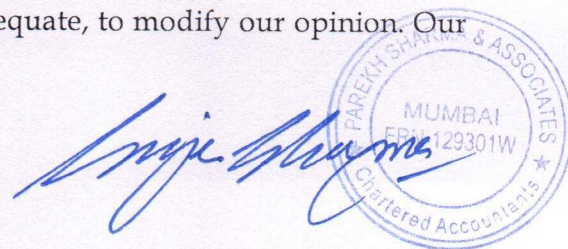 equate, to modify our opinion. Our
PAREKH SHARMA & ASSOCIATES
MUMBAI
FRN 129301W
Chartered Accountants